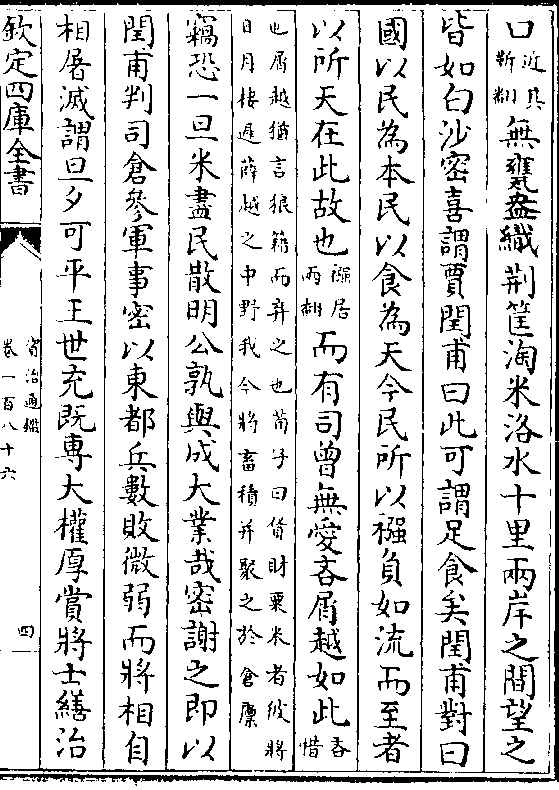 口近其靳翻無甕盎織荆筐淘米洛水十里兩岸之間望之
皆如白沙密喜謂賈閏甫曰此可謂足食矣閏甫對曰
國以民為本民以食為天今民所以襁負如流而至者
以所天在此故也襁居兩翻而有司曾無愛吝屑越如此吝惜
也屑越猶言狼籍而棄之也荀子曰貨財粟米者彼將
日月棲遲薛越之中野我今將畜積并聚之於倉廪
竊恐一旦米盡民散明公孰與成大業哉密謝之即以
閏甫判司倉參軍事密以東都兵數敗微弱而將相自
相屠滅謂旦夕可平王世充既専大權厚賞將士繕治
欽定四庫全書
資治通鑑
卷一百八十六
四